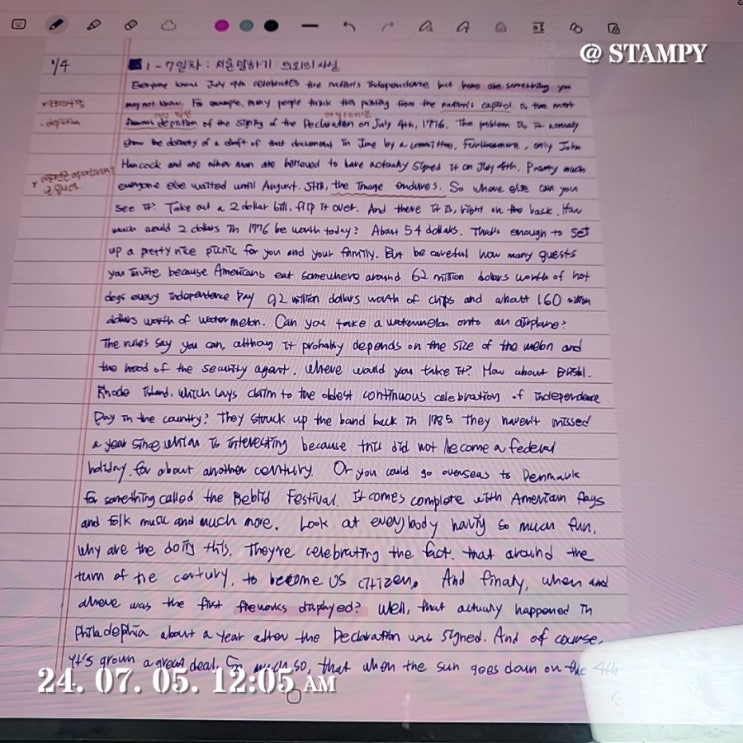 @ STAMPY
1/4
1-7일차: 서론말하기: 의외의 사실
Everyone knows July 4th celebrates the nation's Independence but here are something you
may not know. For example, many people think this painting from the nation's capitol. Is the most
famous depiction of the signing of the Declaration on July 4th, 1776. The problem Is, it actually
- depiction
show the delivery of a draft of that document In June by a committee. Furthermore, only John
Hancock and one other man are believed to have actually signed it on July 4th. Pretty much
everyone else waited until August. Still, the Image endures. So where else can you
see it? Take out a 2 dollar bill, flip it over. And there it is, right on the back. How
much would 2 dollars In 1776 be worth today? About 54 dollars. That's enough to set
up a pretty nice picnic for you and your family. But be careful how many guests
you invite because Americans eat somewhere around 62 million dollars worth of hot
dogs every Independence Day 92 million dollars worth of chips and about 160 million
dollars worth of watermelon. Can you take a watermelon onto an airplane?
The rules say you can, although it probably depends on the size of the melon and
the mood of the security agent. Where would you take it? How about Bristol.
Rhode Island. Which lays claim to the oldest continuous celebration of Independence
Day In the country? They struck up the band back In 1785 They haven't missed
a year since, which Is Interesting because this did not become a federal
holiday for about another century. Or you could go overseas to Denmark
for something called the Rebild Festival. It comes complete with American flags
and folk music and much more. Look at everybody having so much fun.
Why are the doing this. They're celebrating the fact, that around the
turn of the century, to become US citizen. And finally, when and
where was the first fireworks displayed? Well, that actually happened In
Philadelphia about a year after the Declaration was signed. And of course,
It's grown a great deal. So much so, that when the sun goes down on the 4th
24. 07. 05. 12:05 AM